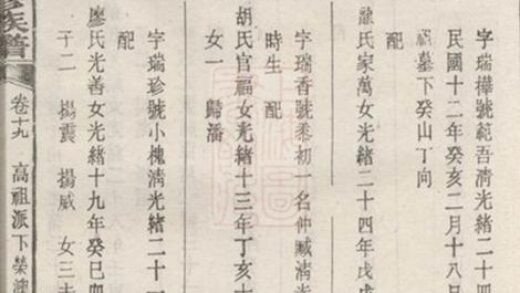 字瑞樺號範吾清光緒二十四
民國十二年癸亥二月十八日
墓下癸山丁向
配
氏家萬女光緒二十四年戊戌
字瑞香號黍初一名仲臧清光
時生 配
胡氏官福女光緒十三年丁亥十
女一 歸潘
字瑞珍號小槐清光緒二十一
配
廖氏光善女光緒十九年癸巳四
子二 揚震 揚威 女三
族譜
卷十九 高祖派下榮